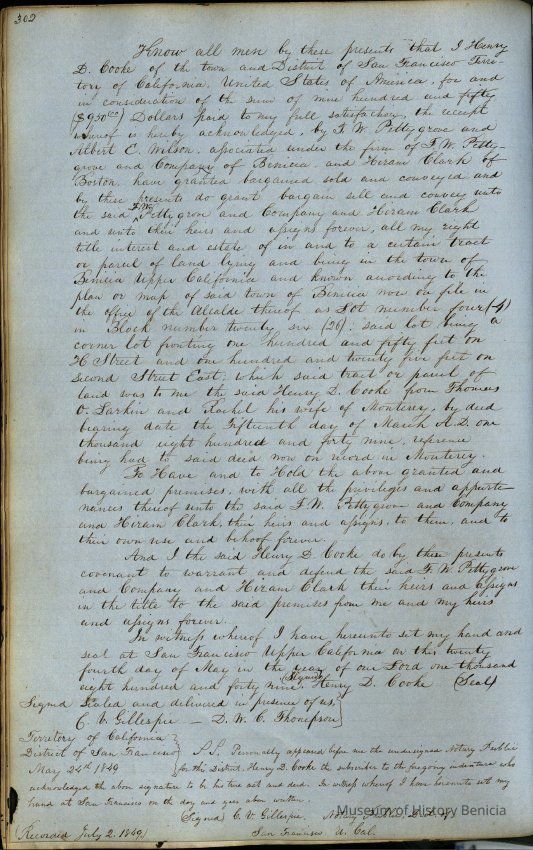 302
Know all men by these presents that I Henry
D. Cooke of the town and District of San Francisco Terri-
tory of California, United States of America, for and
in consideration of the sum of nine hundred and fifty
($950.00) Dollars paid to my full satisfaction, the receipt
whereof is hereby acknowledged, by F. W. Pettygrove and
Albert E. Wilson, associated under the firm of F. W. Petty-
grove and Company of Benicia and Hiram Clark of
Boston, have granted bargained sold and conveyed and
by these presents do grant bargain sell and convey unto
the said F. W. Pettygrove and Company and Hiram Clark
and unto their heirs and assigns forever, all my right
title interest and estate of in and to a certain tract
or parcel of land lying and being in the town of
Benicia Upper California and known according to the
plan or map of said town of Benicia now on file in
the office of the Alcalde thereof as Lot number four (4)
in Block number twenty six (26); said lot being a
corner lot fronting one hundred and fifty feet on
H Street and one hundred and twenty five feet on
Second Street East; which said tract or parcel of
land was to me the said Henry D. Cooke from Thomas
O. Larkin and Rachel his wife of Monterey, by deed
bearing date the Fifteenth day of March A.D. one
thousand eight hundred and forty nine, reference
being had to said deed now on record in Monterey.
To Have and to Hold the above granted and
bargained premises, with all the privileges and appurte-
nances thereof unto the said F. W. Pettygrove and Company
and Hiram Clark, their heirs and assigns, to them, and to
their own use and behoof forever.
And I the said Henry D. Cooke do by these presents
covenant to warrant and defend the said F. W. Pettygrove
and Company and Hiram Clark their heirs and assigns
in the title to the said premises from me and my heirs
and assigns forever.
In witness whereof I have hereunto set my hand and
seal at San Francisco Upper California on this twenty
fourth day of May in the year of our Lord one thousand
eight hundred and forty nine. (Signed) Henry D. Cooke (Seal)
Signed Sealed and delivered in presence of us,
C. V. Gillespie — D. W. C. Thompson
Territory of California
District of San Francisco
May 24th 1849
S.S. Personally appeared before me the undersigned Notary Public
for this District, Henry D. Cooke the subscriber to the foregoing indenture who
acknowledged the above signature to be his true act and deed. In witness whereof I have hereunto set my
hand at San Francisco on the day and year above written.
Signed C. V. Gillespie, Notary
San Francisco U. Cal.
(Recorded July 2. 1849)
Museum of History Benicia